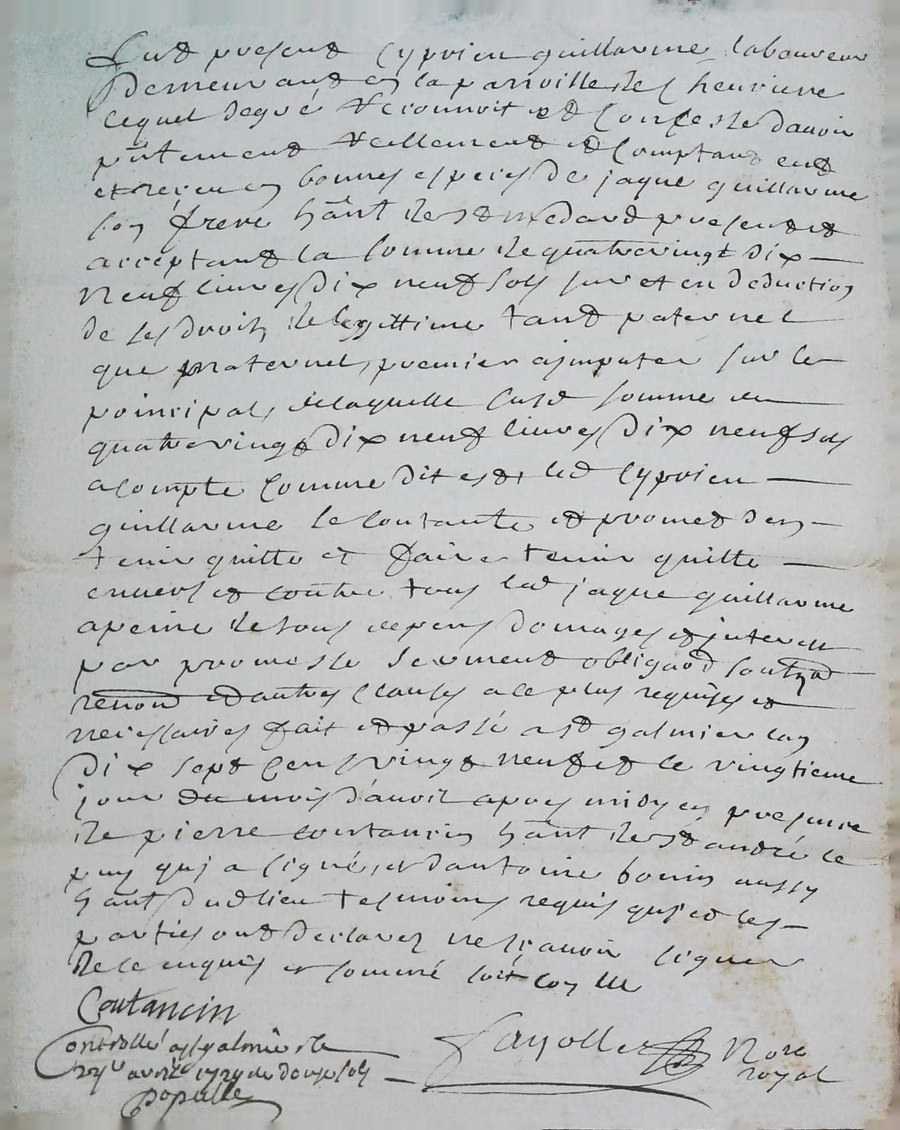 fut present Cyprien guillarme laboureur
demeurant en la parroisse de Chevriere
lequel de gré reconnoit et confesse davoir
pñtement reellement et comptant eub
et receu en bonnes especes de jaque guillarme
son frere hãnt de st medard present et
acceptant la somme de quatrevingt dix
neuf livres dix neuf sols sur et en deduction
de ses droits de legittime tant paternel
que maternel, premier a jmputer sur le
principal, de laquelle susd somme de
quatrevingt dix neuf livres dix neuf sols
a compte comme dit est led Cyprien
guillarme se contante et promet den
tenir quitte et faire tenir quitte
envers et contre tous led jaque guillarme
a peine de tous depens domages et jnterets
par promesse serment obligaõn
renon et autres clauses a ce plus requises et
necessaires fait et passé a st galmier lan
dix sept cens vingt neuf et le vingtieme
jour du mois davril apres midy en presence
de pierre coutancin hãnt de st andré le
puy qui a signé, et dantoine bonin aussy
hãnt dud lieu tesmoins requis qui et les
parties ont declarez ne sçavoir signer
de ce enquis et sommé soit con lle
Coutancin
Controllé a st galmier le
avril 1729 du douze sols
Fayolle Nore
royal
populle